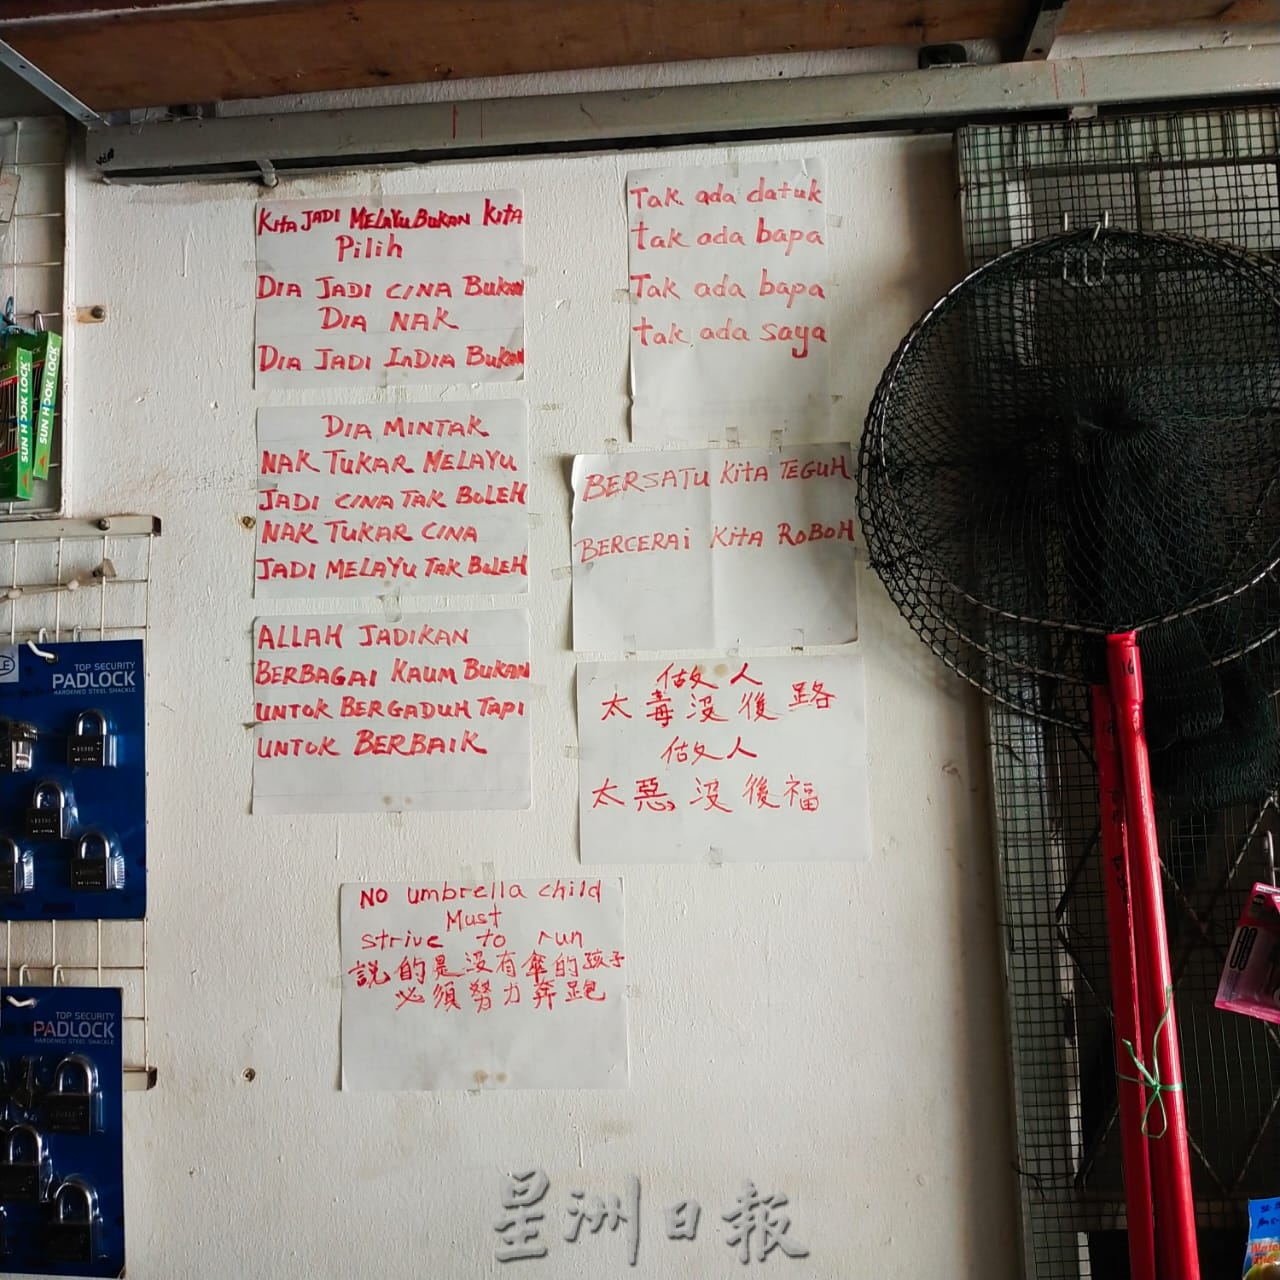 KITA JADI MELAYU BUKAN KITA
Pilih
DIA JADI CINA BUKAN
DIA NAK
DIA JADI INDIA BUKAN
DIA MINTAK
NAK TUKAR MELAYU
JADI CINA TAK BOLEH
NAK TUKAR CINA
JADI MELAYU TAK BOLEH
ALLAH JADIKAN
BERBAGAI KAUM BUKAN
UNTOK BERGADUH TAPI
UNTOK BERBAIK
Tak ada datuk
tak ada bapa
Tak ada bapa
tak ada saya
BERSATU KITA TEGUH
BERCERAI KITA ROBOH
做人
太毒沒後路
做人
太惡沒後福
NO umbrella child
Must
strive to run
説的是沒有傘的孩子
必須努力奔跑
SUN HOOK LOCK
SUN HOOK LOCK
TOP SECURITY
PADLOCK
HARDENED STEEL SHACKLE
TOP SECURITY
PADLOCK
HARDENED STEEL SHACKLE
16
星洲日報